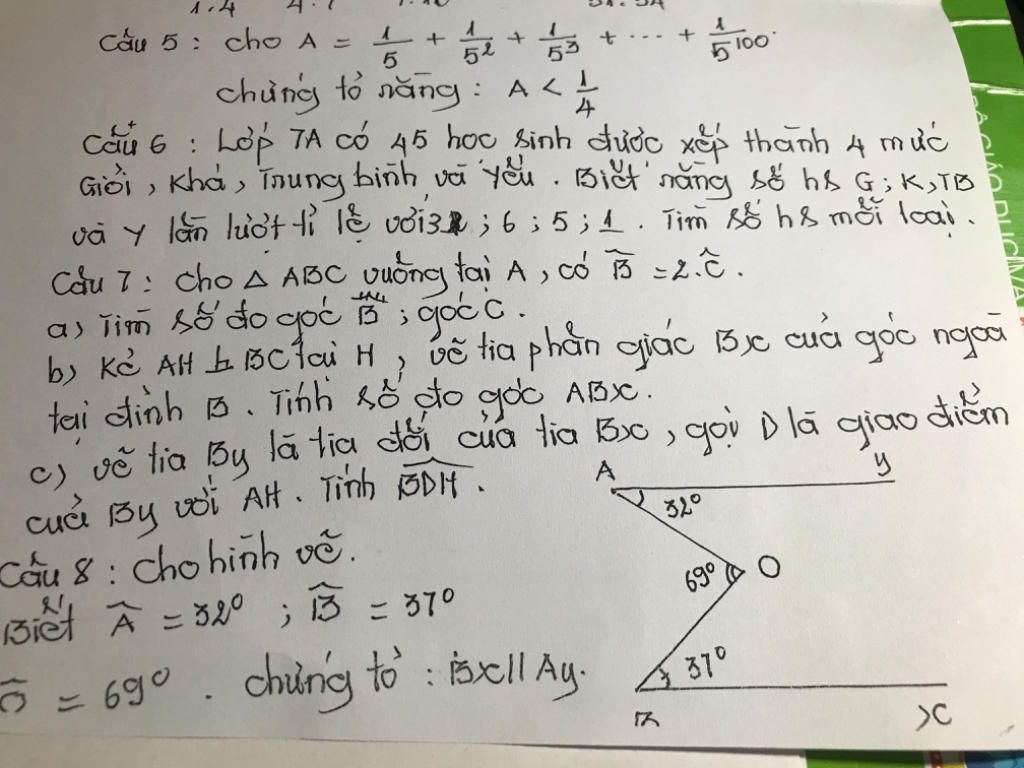 1.4 4.7 7.10 31.34
Câu 5 : cho A = 1/5 + 1/5² + 1/5³ + ... + 1/5¹⁰⁰.
chứng tỏ rằng : A < 1/4
Câu 6 : Lớp 7A có 45 học sinh được xếp thành 4 mức
Giỏi, Khá, Trung bình và Yếu. Biết rằng số hs G; K, TB
và Y lần lượt tỉ lệ với 3 ; 6 ; 5 ; 1. Tìm số hs mỗi loại.
Câu 7 : cho △ ABC vuông tại A, có B̂ = 2.Ĉ.
a) Tìm số đo góc B ; góc C.
b) Kẻ AH ⊥ BC tại H, vẽ tia phân giác Bx của góc ngoài
tại đỉnh B. Tính số đo góc ABx.
c) vẽ tia By là tia đối của tia Bx, gọi D là giao điểm
của By với AH. Tính B̂DH.
Câu 8 : Cho hình vẽ.
Biết Â = 32⁰ ; B̂ = 37⁰
Ô = 69⁰. chứng tỏ : Bx // Ay.
A
y
32⁰
69⁰
O
37⁰
B
x